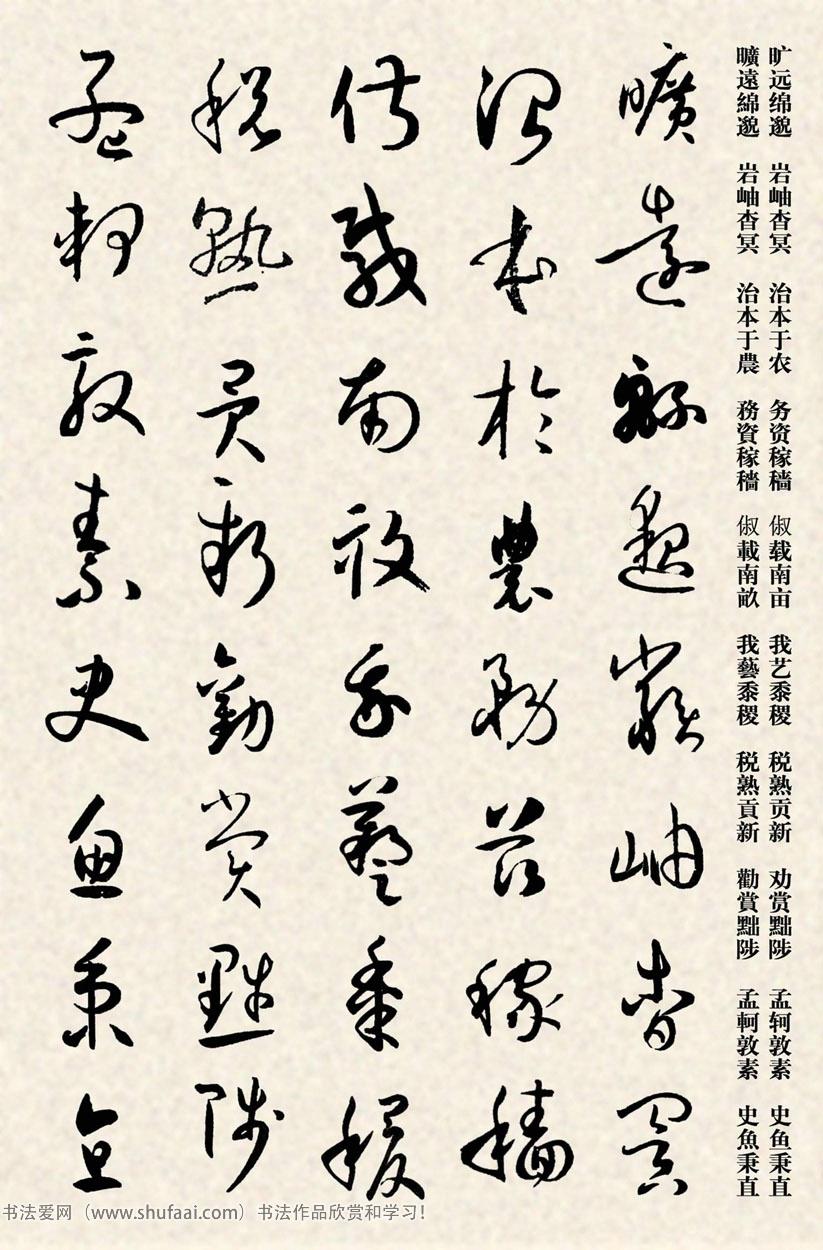 旷远绵邈 岩岫杳冥 治本于农 务资稼穑 俶载南亩 我艺黍稷 税熟贡新 劝赏黜陟 孟轲敦素 史鱼秉直
曠遠綿邈 岩岫杳冥 治本于農 務資稼穡 俶載南畝 我藝黍稷 税熟貢新 勸賞黜陟 孟軻敦素 史魚秉直
曠遠綿邈巖岫杳冥
治本於農務茲稼穡
俶載南畝我藝黍稷
税熟貢新勸賞黜陟
孟軻敦素史魚秉直
书法爱网（www.shufaai.com）书法作品欣赏和学习！